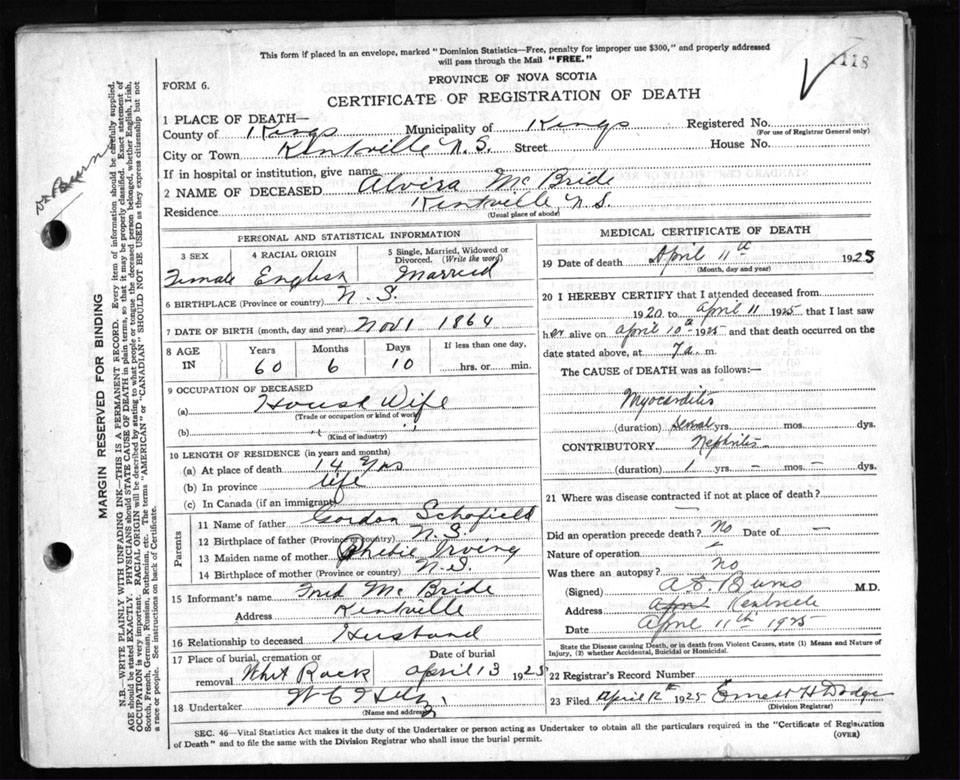 This form if placed in an envelope, marked "Dominion Statistics—Free, penalty for improper use $300," and properly addressed
will pass through the Mail "FREE."
1118
PROVINCE OF NOVA SCOTIA
FORM 6.
CERTIFICATE OF REGISTRATION OF DEATH
1 PLACE OF DEATH—
County of Kings Municipality of Kings Registered No.
(For use of Registrar General only)
City or Town Kentville N.S. Street House No.
If in hospital or institution, give name
2 NAME OF DECEASED Alvira McBride
Residence Kentville N.S.
(Usual place of abode)
PERSONAL AND STATISTICAL INFORMATION
3 SEX 4 RACIAL ORIGIN 5 Single, Married, Widowed or Divorced. (Write the word)
Female English Married
6 BIRTHPLACE (Province or country) N.S.
7 DATE OF BIRTH (month, day and year) Nov 1 1864
8 AGE IN Years Months Days If less than one day,
60 6 10 hrs. or min.
9 OCCUPATION OF DECEASED
(a) House Wife
(Trade or occupation or kind of work)
(b) "
(Kind of industry)
10 LENGTH OF RESIDENCE (in years and months)
(a) At place of death 14 Yrs
(b) In province life
(c) In Canada (if an immigrant)
Parents
11 Name of father Gordon Schofield
12 Birthplace of father (Province or country) N.S.
13 Maiden name of mother Phebie Irving
14 Birthplace of mother (Province or country) N.S.
15 Informant's name Fred McBride
Address Kentville
16 Relationship to deceased Husband
17 Place of burial, cremation or removal Date of burial
Whit Rock April 13 1925
18 Undertaker
(Name and address)
MEDICAL CERTIFICATE OF DEATH
19 Date of death April 11th 1925
(Month, day and year)
20 I HEREBY CERTIFY that I attended deceased from
1920 to April 11 1925 that I last saw
her alive on April 10th 1925 and that death occurred on the
date stated above, at 7 a. m.
The CAUSE of DEATH was as follows:—
Myocarditis
(duration) several yrs. mos. dys.
CONTRIBUTORY Nephritis
(duration) 1 yrs. — mos. — dys.
21 Where was disease contracted if not at place of death?
—
Did an operation precede death? No Date of —
Nature of operation
Was there an autopsy? no
(Signed) A E Burns M.D.
Address Kentville
Date April 11th 1925
State the Disease causing Death, or in death from Violent Causes, state (1) Means and Nature of
Injury, (2) whether Accidental, Suicidal or Homicidal.
22 Registrar's Record Number
23 Filed April 12th 1925 Ernest H Dodge
(Division Registrar)
SEC. 46—Vital Statistics Act makes it the duty of the Undertaker or person acting as Undertaker to obtain all the particulars required in the "Certificate of Registration
of Death" and to file the same with the Division Registrar who shall issue the burial permit.
(OVER)
MARGIN RESERVED FOR BINDING
N.B.—WRITE PLAINLY WITH UNFADING INK—THIS IS A PERMANENT RECORD. Every item of information should be carefully supplied.
AGE should be stated EXACTLY. PHYSICIANS should STATE CAUSE OF DEATH in plain terms, so that it may be properly classified. Exact statement of
OCCUPATION is very important. RACIAL ORIGIN will be described by stating to what people or tongue the deceased person belonged, whether English, Irish,
Scotch, French, German, Russian, Ruthenian, etc. The terms "AMERICAN" or "CANADIAN" SHOULD NOT BE USED as they express citizenship but not
a race or people. See instructions on back of Certificate.